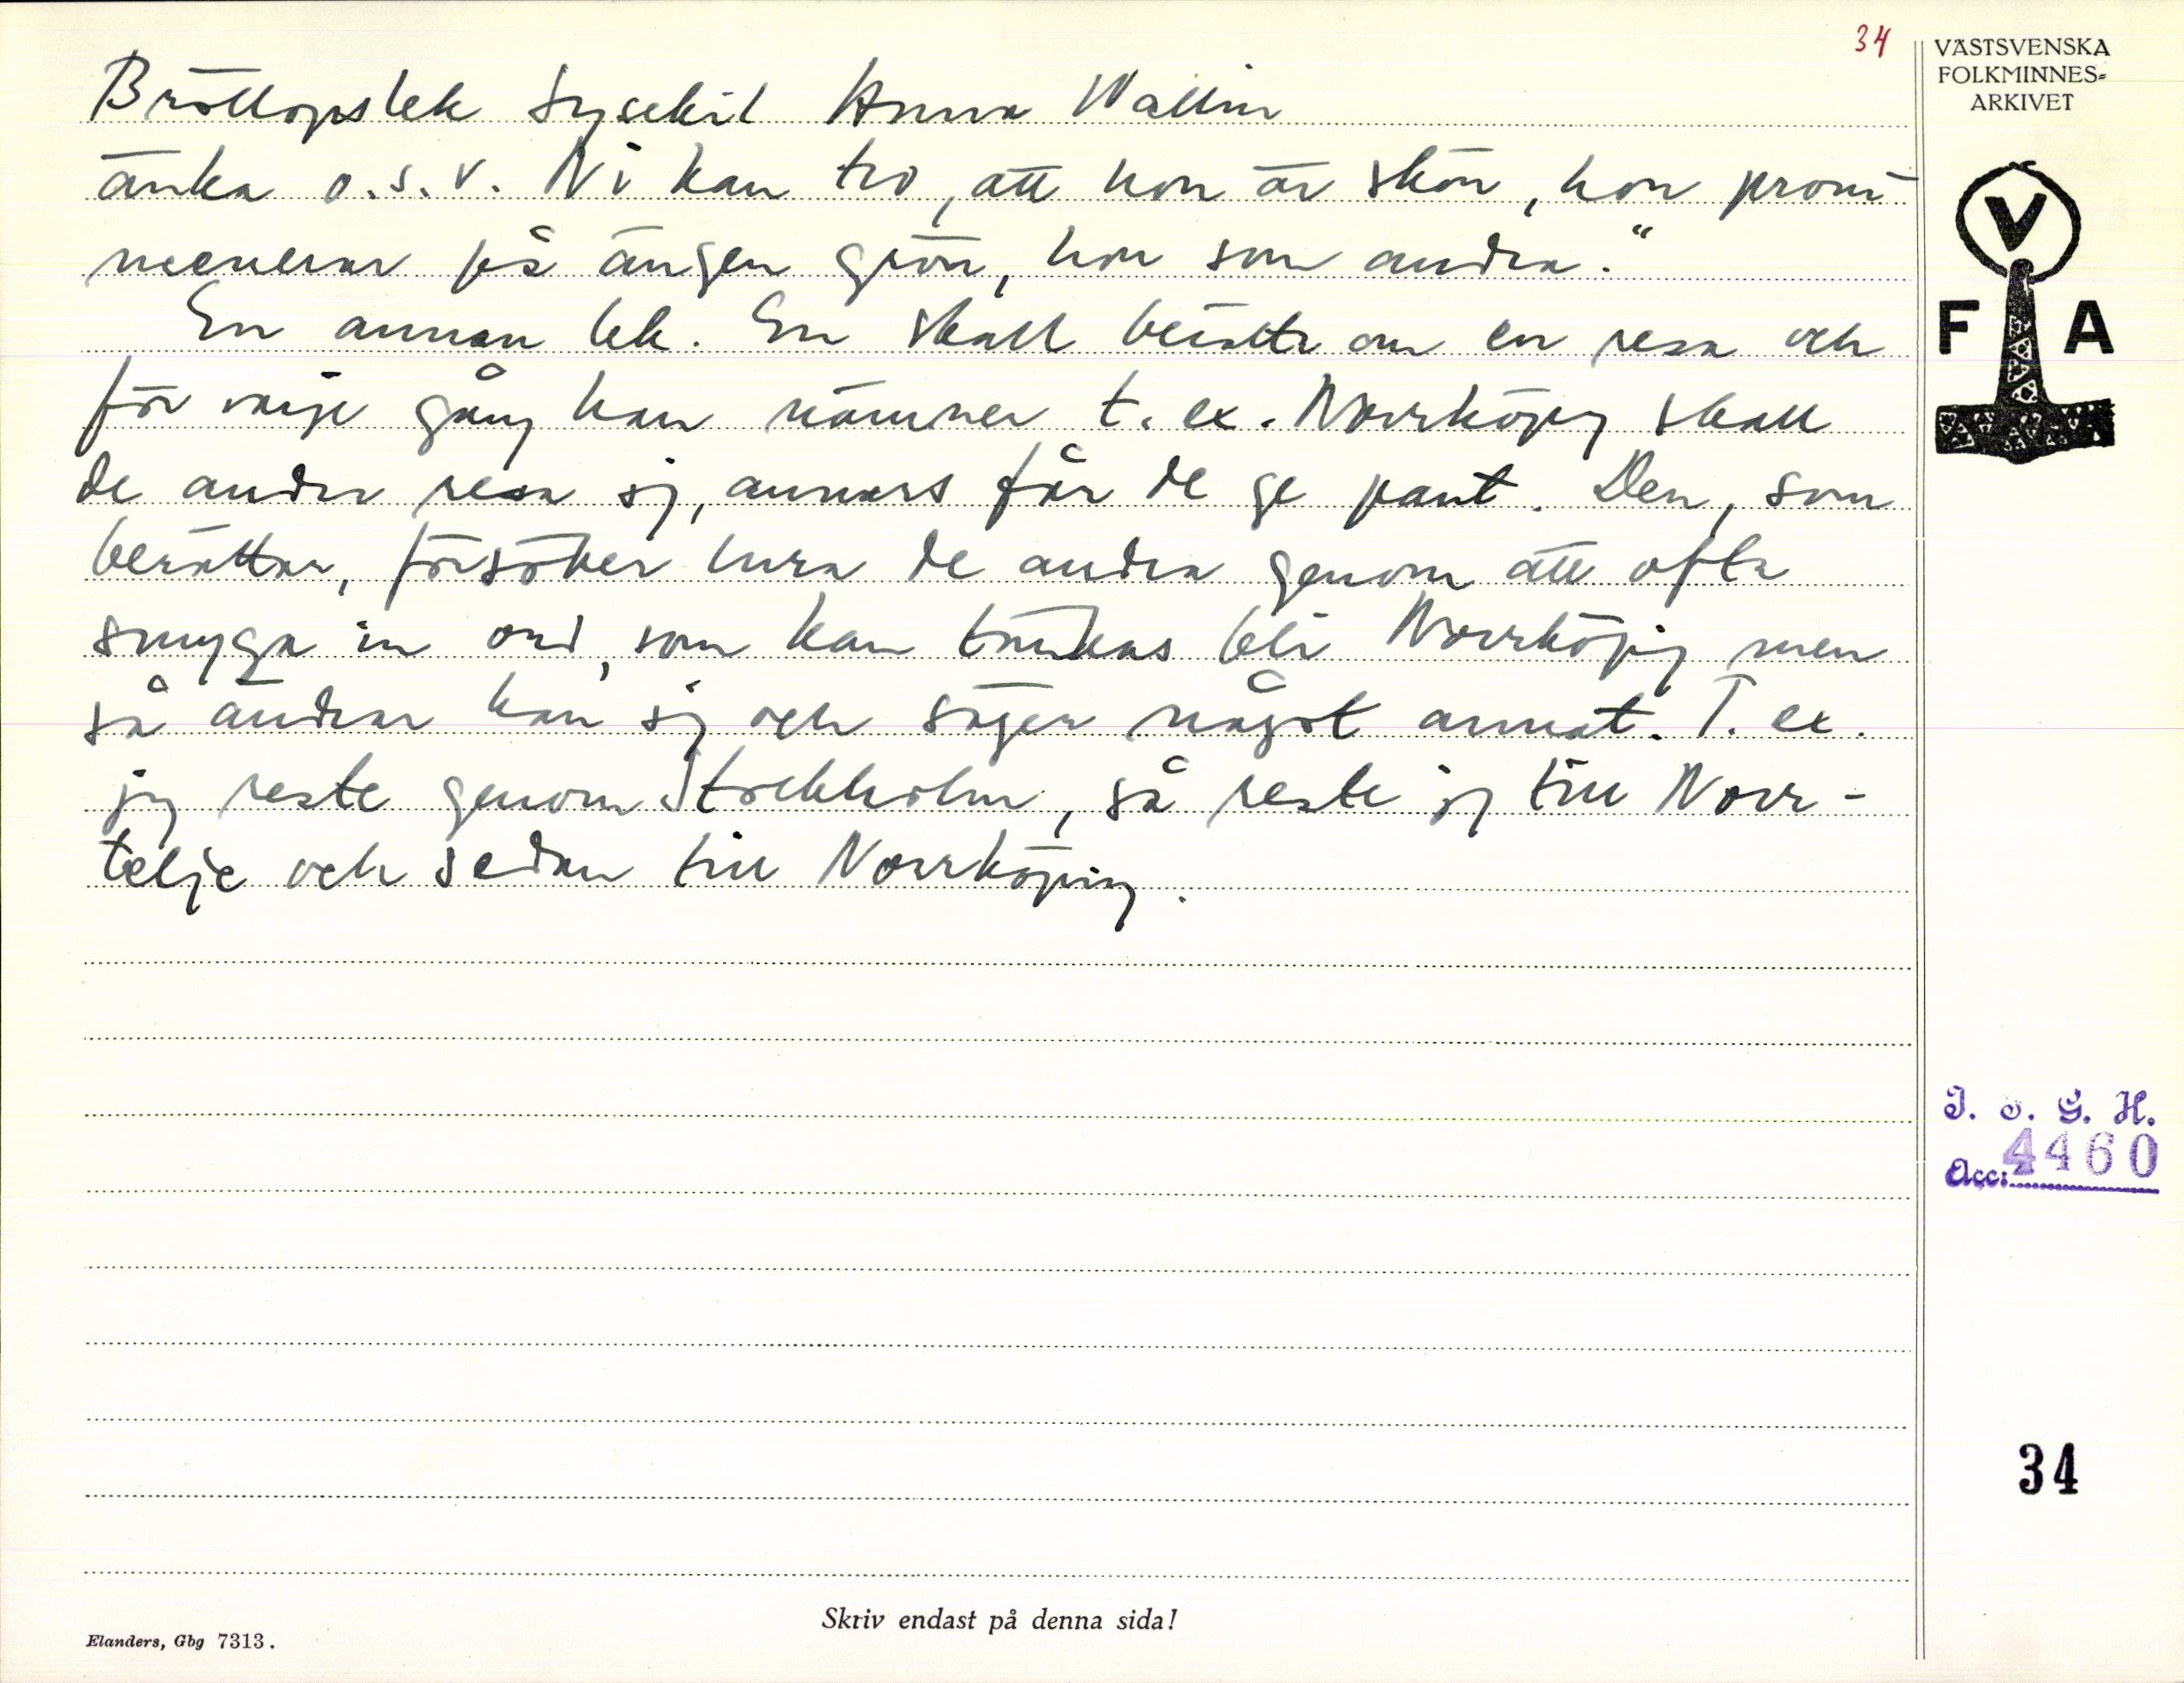 34
VÄSTSVENSKA
FOLKMINNES-
ARKIVET
V
F A
Bröllopslek Lysekil Anna Wallin
änka o.s.v. Ni kan tro, att hon är skön, hon prom-
meenerar på ängen grön, hon som andra."
En annan lek. En skall berätta om en resa och
för varje gång han nämner t. ex. Norrköping skall
de andra resa sig, annars får de ge pant. Den, som
berättar, försöker lura de andra genom att ofta
smyga in ord, som kan tänkas bli Norrköping men
så ändrar han sig och säger något annat. T. ex.
jag reste genom Stockholm, så reste jag till Norr-
telje och sedan till Norrköping.
I. o. G. H.
Acc: 4460
34
Skriv endast på denna sida!
Elanders, Gbg 7313.